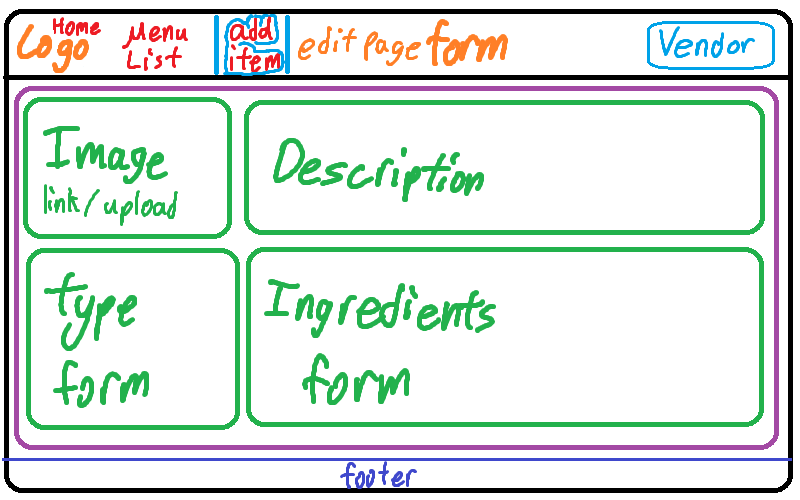 Home
Logo
Menu
List
add
item
edit page form
Vendor
Image
link/upload
Description
type
form
Ingredients
form
footer